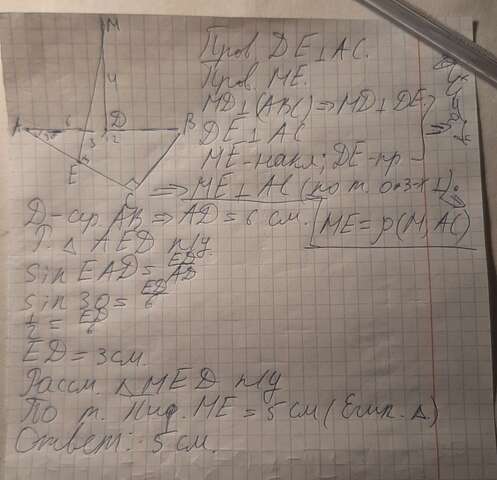 M
4
A
30°
6
D
B
3
2
E
C
Пров DE⊥AC.
Пров ME.
MD⊥(ABC)⇒MD⊥DE.
DE⊥AC
ME-накл; DE-пр-
⇒ME⊥AC (по т. о 3-х ⊥).
D-сер. AB ⇒ AD = 6 см.
ME = ρ(M, AC)
Р. △ AED п/у.
sin EAD = ED/AD
sin 30 = ED/6
1/2 = ED/6
ED = 3 см.
Рассм. △MED п/у
По т. Пиф. ME = 5 см (Егип. △)
Ответ: 5 см.